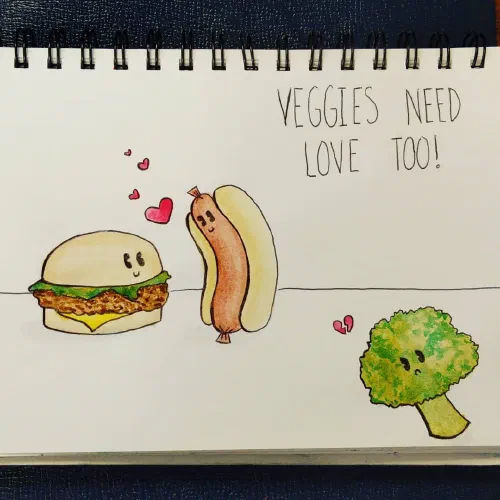 VEGGIES NEED
LOVE TOO!